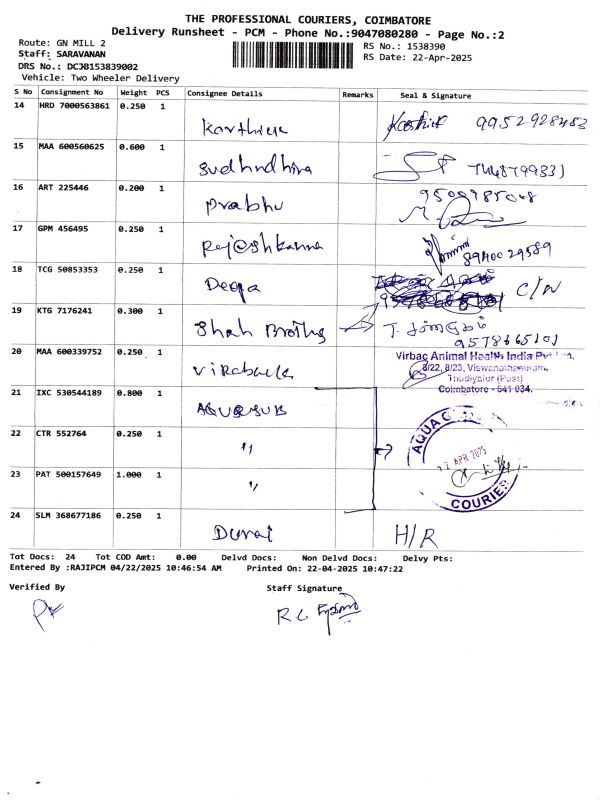 THE PROFESSIONAL COURIERS, COIMBATORE
Delivery Runsheet - PCM - Phone No.:9047080280 - Page No.:2
Route: GN MILL 2
RS No.: 1538390
Staff: SARAVANAN
RS Date: 22-Apr-2025
DRS No.: DCJB153839002
Vehicle: Two Wheeler Delivery
S No Consignment No Weight PCS Consignee Details Remarks Seal & Signature
14 HRD 7000563861 0.250 1 Karthick Karthick 9952928483
15 MAA 600560625 0.600 1 Sudhndhira
16 ART 225446 0.200 1 Prabhu
17 GPM 456495 0.250 1 Rajeshkanna 8940029589
18 TCG 50853353 0.250 1 Deepa C/N
19 KTG 7176241 0.300 1 Shah Broths
9578665101
20 MAA 600339752 0.250 1 Virabacke
Virbac Animal Health India Pvt
8/22, 8/23, Viswanathapuram,
Thudiyalur (Post)
Coimbatore - 641 034.
21 IXC 530544189 0.800 1 AQUASUB
22 CTR 552764 0.250 1 "
AQUA
22 APR 2025
COURIER
23 PAT 500157649 1.000 1 "
24 SLM 368677186 0.250 1 Durai H/R
Tot Docs: 24 Tot COD Amt: 0.00 Delvd Docs: Non Delvd Docs: Delvy Pts:
Entered By :RAJIPCM 04/22/2025 10:46:54 AM Printed On: 22-04-2025 10:47:22
Verified By Staff Signature